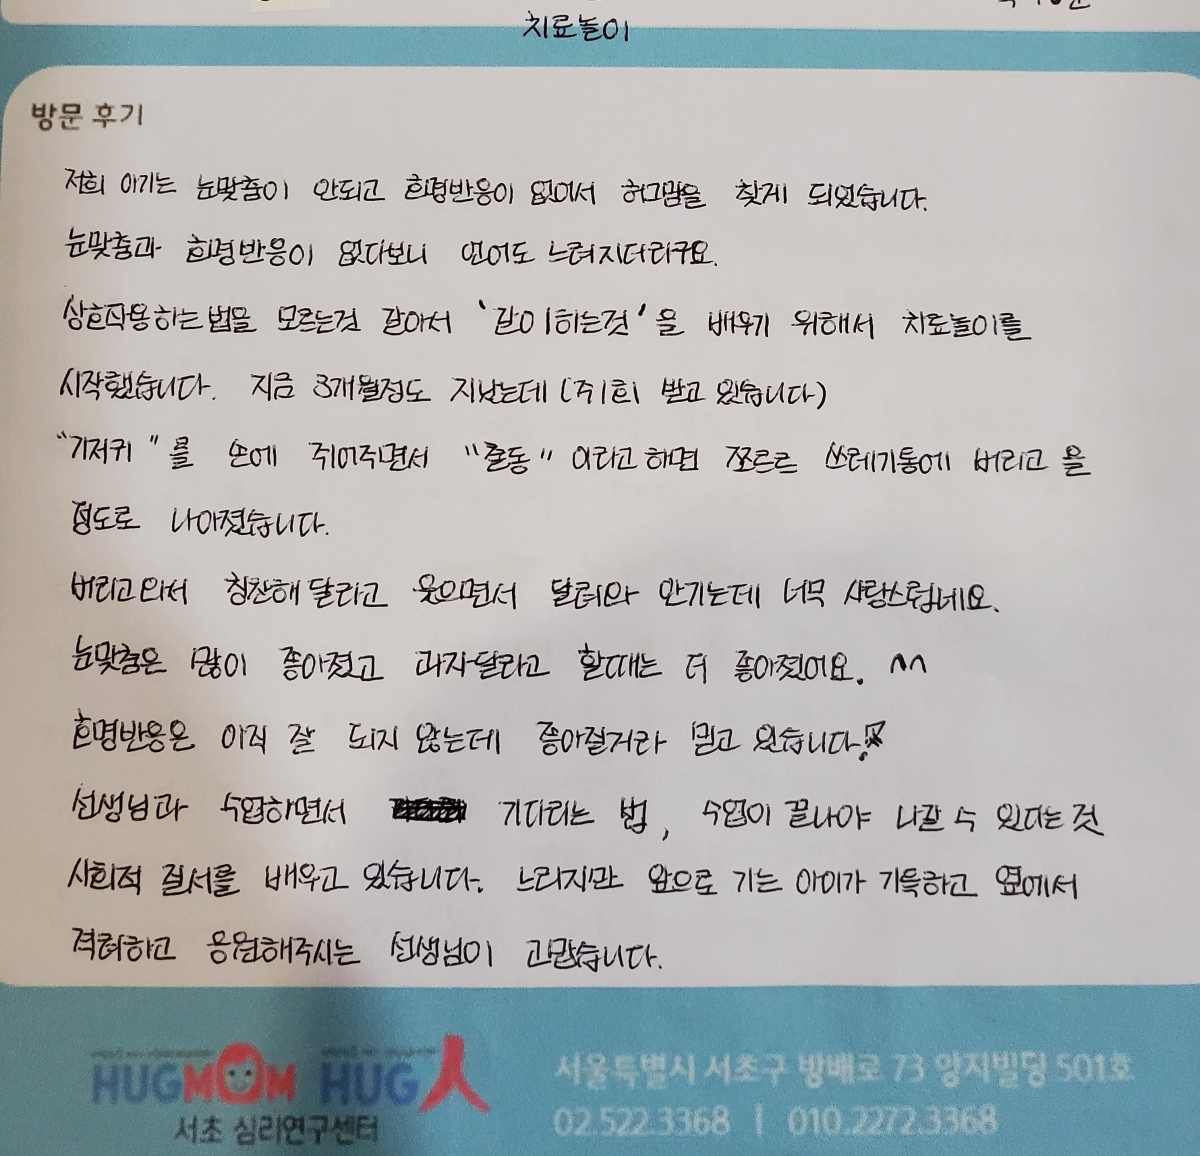 치료놀이
방문 후기
저희 아기는 눈맞춤이 안되고 호명반응이 없어서 허그맘을 찾게 되었습니다.
눈맞춤과 호명반응이 없다보니 언어도 느려지더라구요.
상호작용하는법을 모르는것 같아서 '같이하는것'을 배우기 위해서 치료놀이를
시작했습니다. 지금 3개월정도 지났는데 (주1회 받고 있습니다)
"기저귀"를 손에 쥐어주면서 "출동"이라고 하면 쪼르르 쓰레기통에 버리고 올
정도로 나아졌습니다.
버리고와서 칭찬해달라고 웃으면서 달려와 안기는데 너무 사랑스럽네요.
눈맞춤은 많이 좋아졌고 과자달라고 할때는 더 좋아졌어요. ^^
호명반응은 아직 잘 되지 않는데 좋아질거라 믿고 있습니다!
선생님과 수업하면서 기다리는 법, 수업이 끝나야 나갈 수 있다는것
사회적 질서를 배우고 있습니다. 느리지만 앞으로 가는 아이가 기특하고 옆에서
격려하고 응원해주시는 선생님이 고맙습니다.
HUGMOM HUG人
서초 심리연구센터
서울특별시 서초구 방배로 73 양지빌딩 501호
02.522.3368 | 010.2272.3368